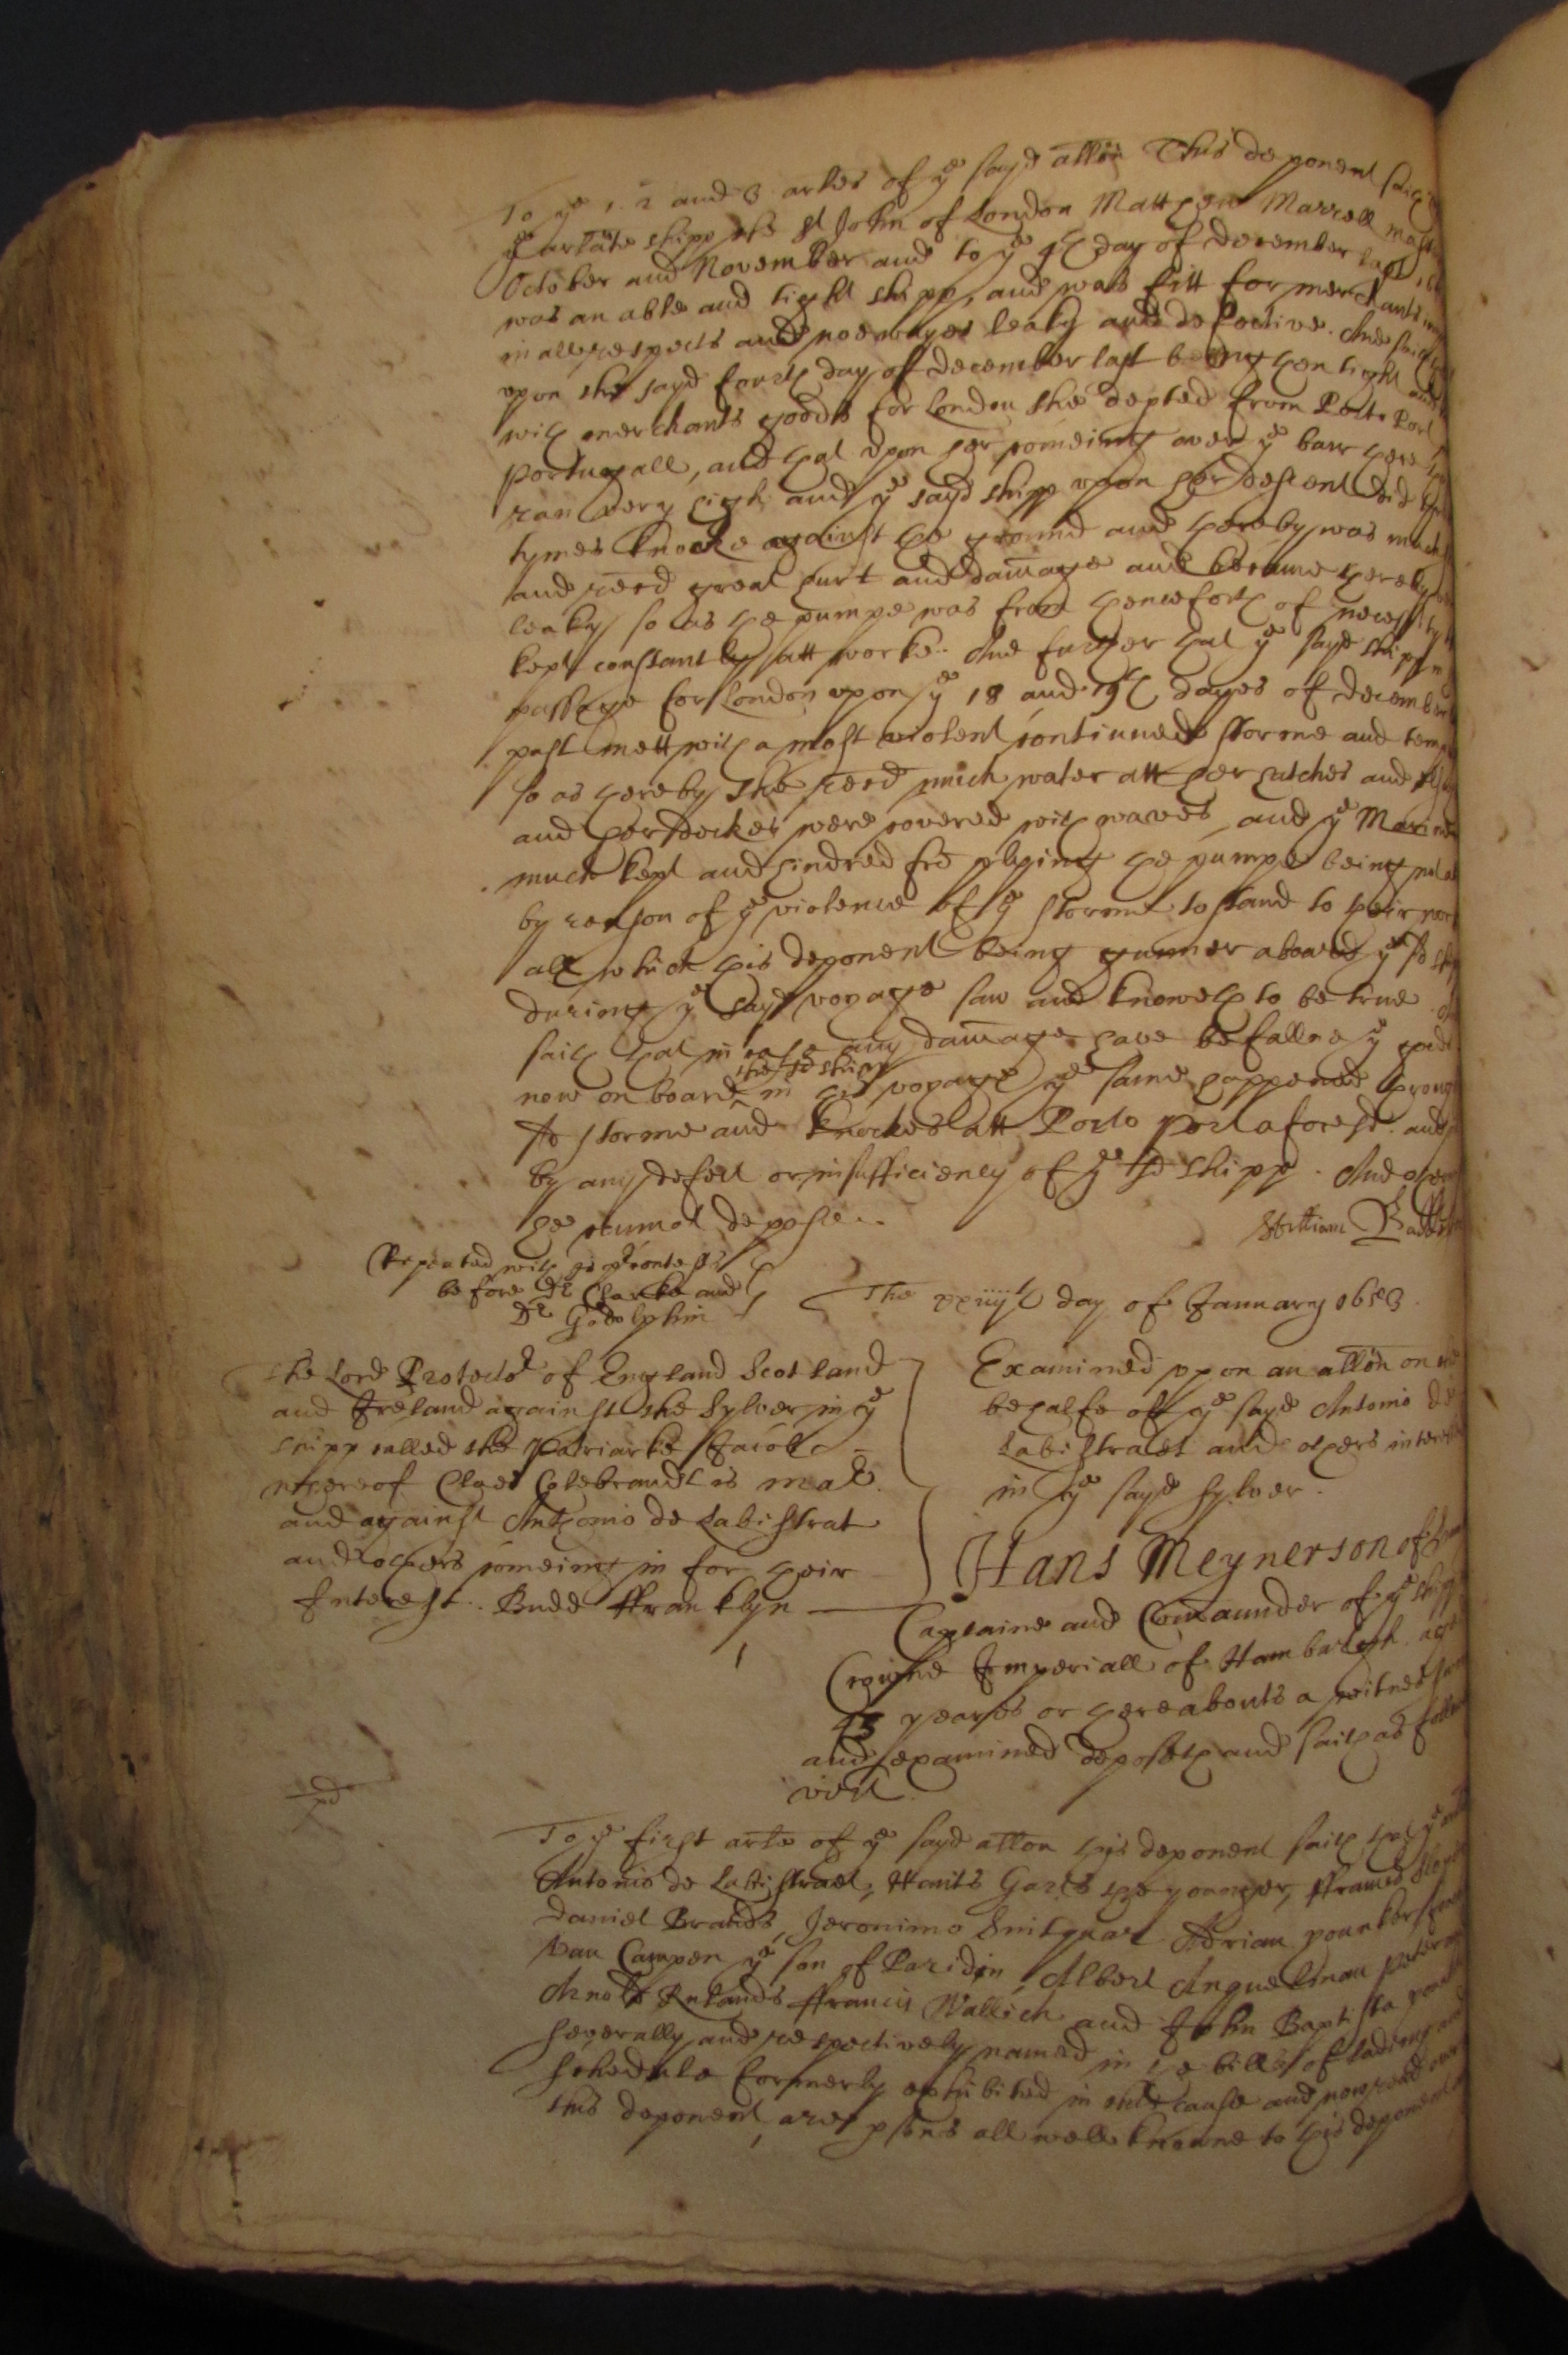 To ye 1. 2 and 3 arles of ye sayd allon This deponent saith
ye arlate shipp the St John of London Matthew Marrell master
October and November and to ye 4th day of December last
was an able and tight shipp, and was fitt for merchants
in all respects and noe wayes leaky and defective. And saith
upon the sayd fourth day of December last being then tight and
with merchants goods for London she depted from Porto Port
Portugall, and that upon her comeing over ye barr there
ran very high and ye sayd shipp upon her descent did
tymes knocke against the ground and thereby was much
and recd great hurt and damage and became thereby
leaky so as the pumpe was from thenceforth of necessity
kept constantly att worke. And further that ye sayd shipp in
passage for London upon ye 18 and 19th dayes of December
past mett with a most violent continued storme and temp
so as thereby she recd much water att her hatches and
and her deckes were covered with waves, and ye Marin
much kept and hindred fro plying the pumpe being not
by reason of ye violence of ye storme to stand to their
all which this deponent being gunner aboard ye sd
during ye sayd voyage saw and knoweth to be true
saith that in case any damage have befallne ye
now on board the sd shipp in his voyage ye same happened through
storme and knockes att Porto Port aforesd. and
by any defect or insufficiency of ye sd shipp. And
he cannot depose..
William
Repeated with his
before Dr Clarke and
Dr Godolphin
The xxiiijth day of January 1653.
The Lord Protector of England Scotland
and Ireland against the Sylver in ye
shipp called the Patriarke Jacob
whereof Claes Colebrandt is mar.
and against Anthonio de Labistrat
and others comeing in for their
Interest. Budd ffranklyn
Examined upon an allon on the
behalfe of ye sayd Antonio de
Labistraet and others
in ye sayd sylver.
Hans Meynerson of
Captaine and Comaunder of ye shipp
Crowne Imperiall of Hamburgh. aged
43 yeares or thereabouts a witnes
and examined deposeth and saith as
vizt.
To ye first arle of ye sayd allon this deponent saith that ye
Antonio de Labistraet, Gars the younger,
Daniel Brands, Jeronimo Snitquar Adrian
Van Campen ye son of Paridin, Albert Anguelman
Arnold Rulands ffrancis Wallich and John Baptista
severally and respectively named in ye bills of lading
schedule formerly exhibited in this cause and now read
this deponent, are psons all well knowne to this deponent